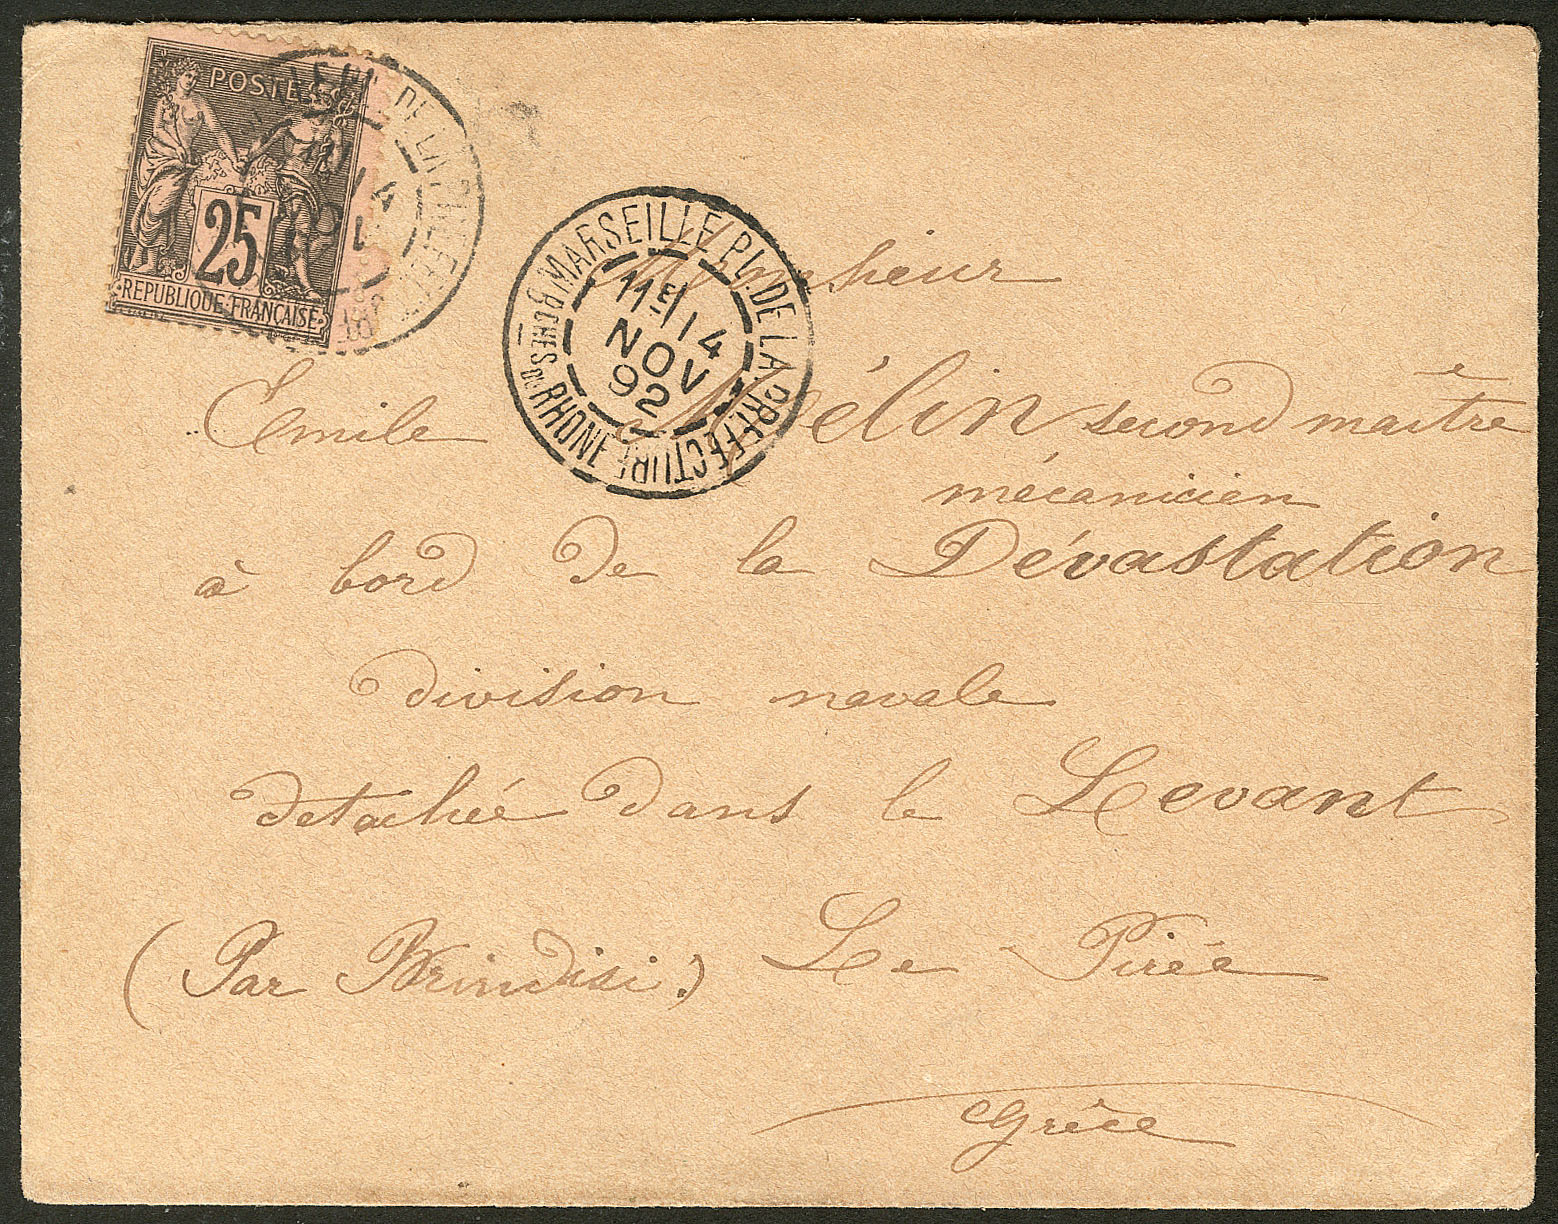 POSTES
25
REPUBLIQUE FRANÇAISE
MARSEILLE PL. DE LA PREFECTURE
11E 14
NOV
92
BCHES DU RHONE
DE LA
Monsieur
Emile Mélin second maître
mécanicien
à bord de la Dévastation
division navale
detachée dans le Levant
(Par Brindisi.) Le Pirée
Grèce